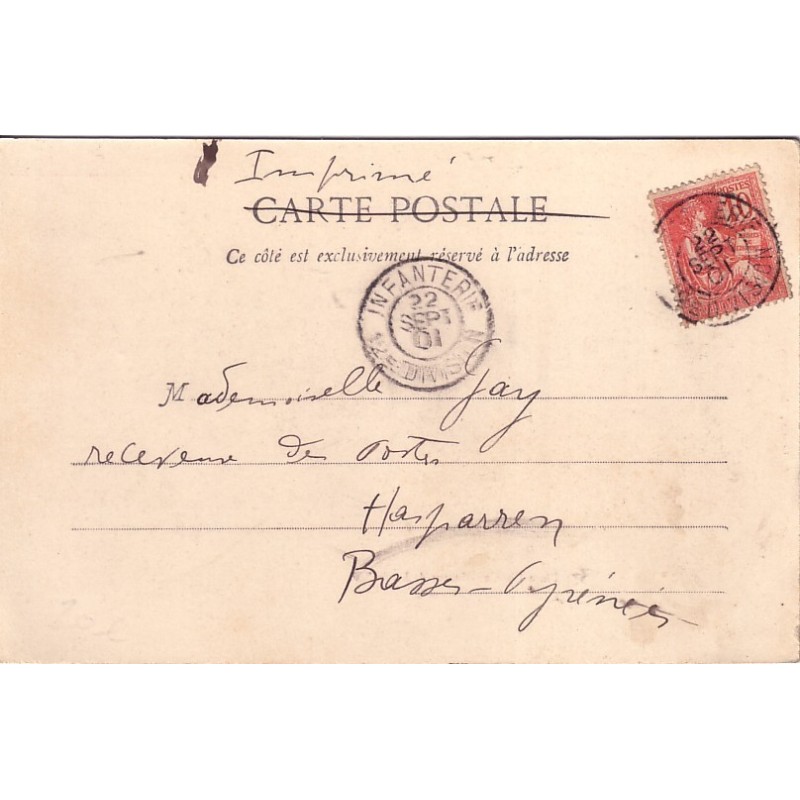 Imprimé
CARTE POSTALE
Ce côté est exclusivement réservé à l'adresse
INFANTERIE N
22
SEPT
01
12E DIVISION
Mademoiselle Gay
receveuse des Postes
Hasparren
Basses-Pyrénées
10
POSTES